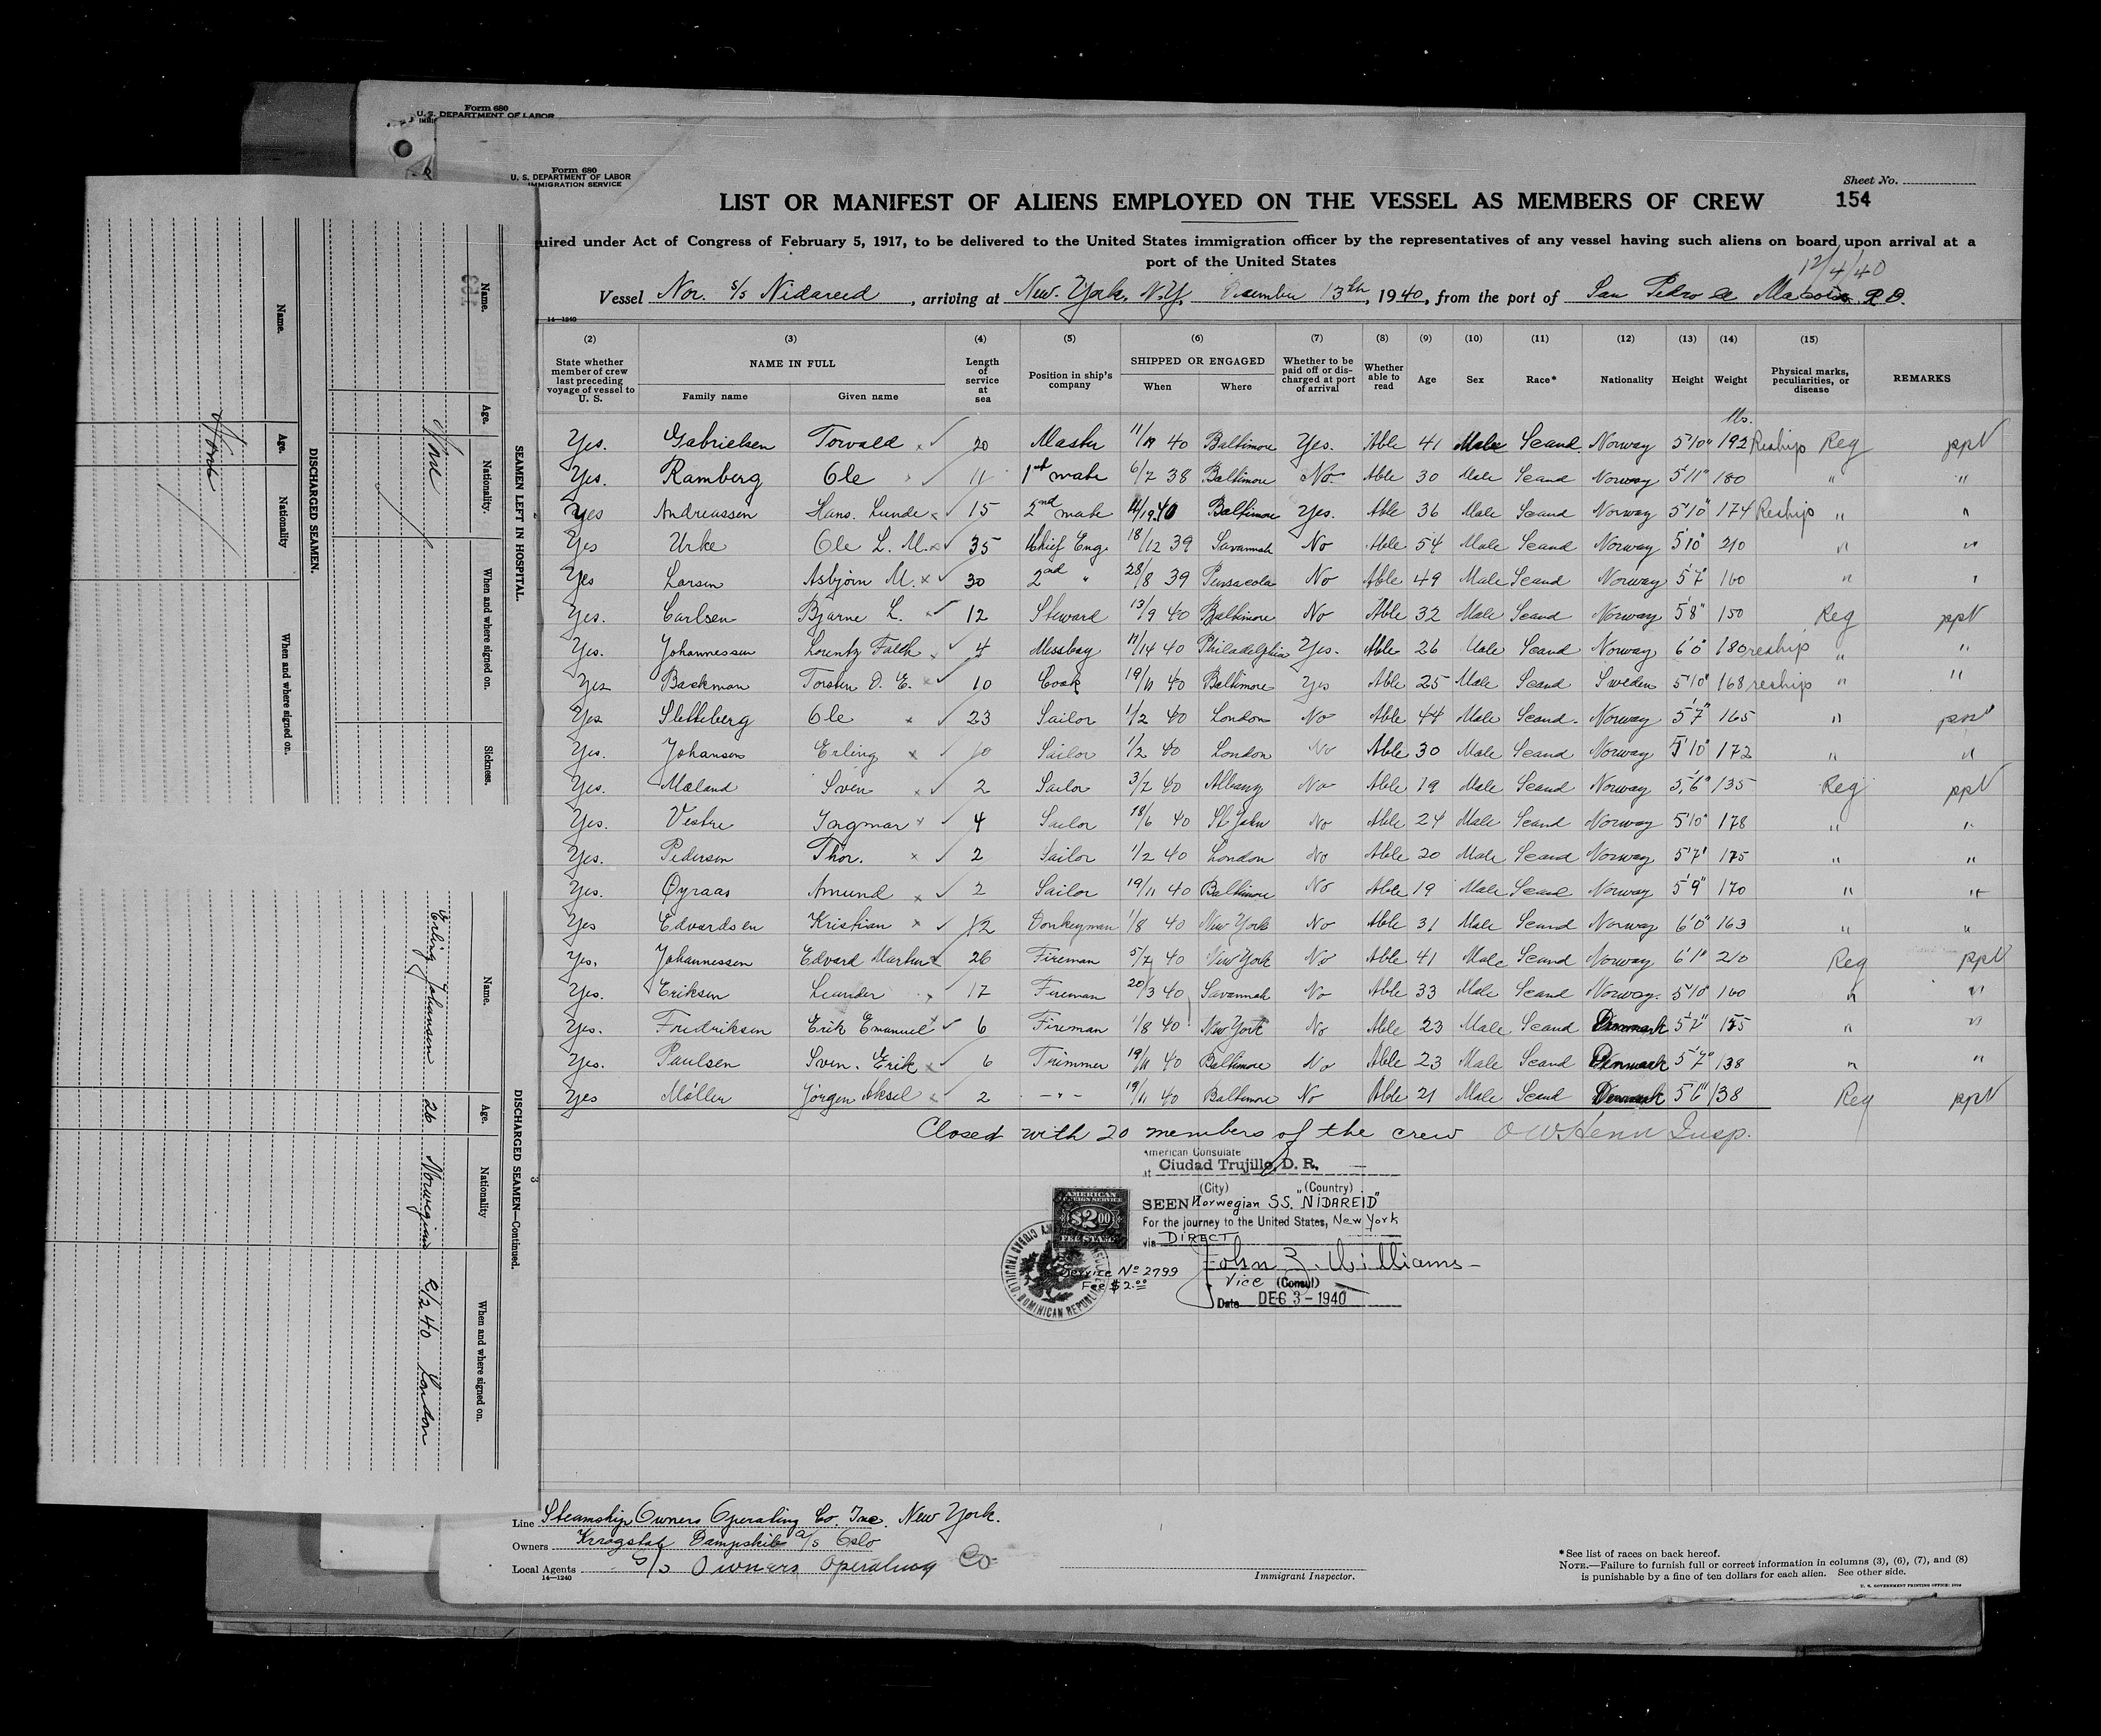 Form 680
U. S. DEPARTMENT OF LABOR
Form 680
U. S. DEPARTMENT OF LABOR
IMMIGRATION SERVICE
Sheet No.
154
LIST OR MANIFEST OF ALIENS EMPLOYED ON THE VESSEL AS MEMBERS OF CREW
uired under Act of Congress of February 5, 1917, to be delivered to the United States immigration officer by the representatives of any vessel having such aliens on board upon arrival at a
port of the United States
12/4/40
Vessel Nor. S/S Nidareid, arriving at New. York, N.Y. December 13th, 1940, from the port of San Pedro de Macoris R D.
14—1240
(2) (3) (4) (5) (6) (7) (8) (9) (10) (11) (12) (13) (14) (15)
State whether member of crew last preceding voyage of vessel to U. S. | NAME IN FULL | Family name | Given name | Length of service at sea | Position in ship's company | SHIPPED OR ENGAGED | When | Where | Whether to be paid off or discharged at port of arrival | Whether able to read | Age | Sex | Race* | Nationality | Height | Weight | Physical marks, peculiarities, or disease | REMARKS
lbs.
Yes. Gabrielsen Torvald x ✓ 20 Master 11/19 40 Baltimore Yes. Able 41 Male Scand. Norway 5'10" 192 Reship Reg ppV
Yes. Ramberg Ole x ✓ 11 1st mate 6/2 38 Baltimore No. Able 30 Male Scand Norway 5'11" 180 " "
Yes Andreassen Hans. Lunde x ✓ 15 2nd mate 11/19 40 Baltimore Yes. Able 36 Male Scand Norway 5'10" 174 Reship " "
Yes Urke Ole L. M. x ✓ 35 Chief Eng. 18/12 39 Savannah No Able 54 Male Scand Norway 5'10" 210 " "
Yes Larsen Asbjorn M. x ✓ 30 2nd " 28/8 39 Pensacola No Able 49 Male Scand Norway 5'7" 160 " "
Yes. Carlsen Bjarne L. x ✓ 12 Steward 13/9 40 Baltimore No Able 32 Male Scand Norway 5'8" 150 Reg ppV
Yes. Johannessen Lorentz Falch x ✓ 4 Messboy 11/14 40 Philadelphia Yes. Able 26 Male Scand Norway 6'0" 180 reship " "
Yes Backman Torsten O. E. x ✓ 10 Cook 19/11 40 Baltimore Yes Able 25 Male Scand Sweden 5'10" 168 reship " "
Yes Sletteberg Ole x ✓ 23 Sailor 1/2 40 London No Able 44 Male Scand. Norway 5'7" 165 " ppV
Yes. Johansen Erling x ✓ 10 Sailor 1/2 40 London No Able 30 Male Scand Norway 5'10" 172 " "
Yes. Moland Sven x ✓ 2 Sailor 3/7 40 Albany No Able 19 Male Scand Norway 5'6" 135 Reg ppV
Yes. Vestre Ingmar x ✓ 4 Sailor 18/6 40 St John No Able 24 Male Scand Norway 5'10" 178 " "
Yes. Pedersen Thor. x ✓ 2 Sailor 1/2 40 London No Able 20 Male Scand Norway 5'7" 175 " "
Yes. Øyraas Amund x ✓ 2 Sailor 19/11 40 Baltimore No Able 19 Male Scand Norway 5'9" 170 " "
Yes Edvardsen Kristian x ✓ 12 Donkeyman 1/8 40 New York No Able 31 Male Scand Norway 6'0" 163 " "
Yes. Johannessen Edvard 26 Fireman 5/7 40 New York No Able 41 Male Scand Norway 6'1" 210 Reg ppV
Yes. Eriksen Leander x 17 Fireman 20/3 40 Savannah No Able 33 Male Scand Norway. 5'10" 160 " "
Yes. Fredriksen Erik Emanuel x ✓ 6 Fireman 1/8 40 New York No Able 23 Male Scand Denmark 5'7" 155 " "
Yes. Paulsen Sven. Erik x ✓ 6 Trimmer 19/11 40 Baltimore No Able 23 Male Scand Denmark 5'7" 138 " "
Yes Møller Jörgen Aksel x 2 —"— 19/11 40 Baltimore No Able 21 Male Scand Denmark 5'6" 138 Reg ppV
Closed with 20 members of the crew O W Henn Insp.
American Consulate
at Ciudad Trujillo, D. R.
(City) (Country)
SEEN Norwegian SS. "NIDAREID"
For the journey to the United States, New York
via DIRECT
John Z. Williams
Vice (Consul)
Date DEC 3 - 1940
AMERICAN
FOREIGN SERVICE
$2.00
FEE STAMP
Service No 2799
Fee $2.00
CIUDAD TRUJILLO, DOMINICAN REPUBLIC
Line Steamship Owners Operating Co. Inc. New York.
Owners Krogstad Dampskib A/S Oslo
Local Agents S/S Owners Operating Co
14—1240
Immigrant Inspector.
*See list of races on back hereof.
NOTE.—Failure to furnish full or correct information in columns (3), (6), (7), and (8)
is punishable by a fine of ten dollars for each alien. See other side.
U. S. GOVERNMENT PRINTING OFFICE
3
SEAMEN LEFT IN HOSPITAL.
Name. Age. Nationality. When and where signed on. Sickness.
None
DISCHARGED SEAMEN.
Name. Age. Nationality When and where signed on.
None
DISCHARGED SEAMEN—Continued.
Name. Age. Nationality When and where signed on.
Erling Johansen 26 Norwegian 2/2 40 London